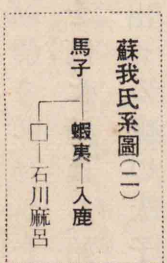 蘇我氏系圖(二)
馬子―蝦夷―入鹿
□―石川麻呂